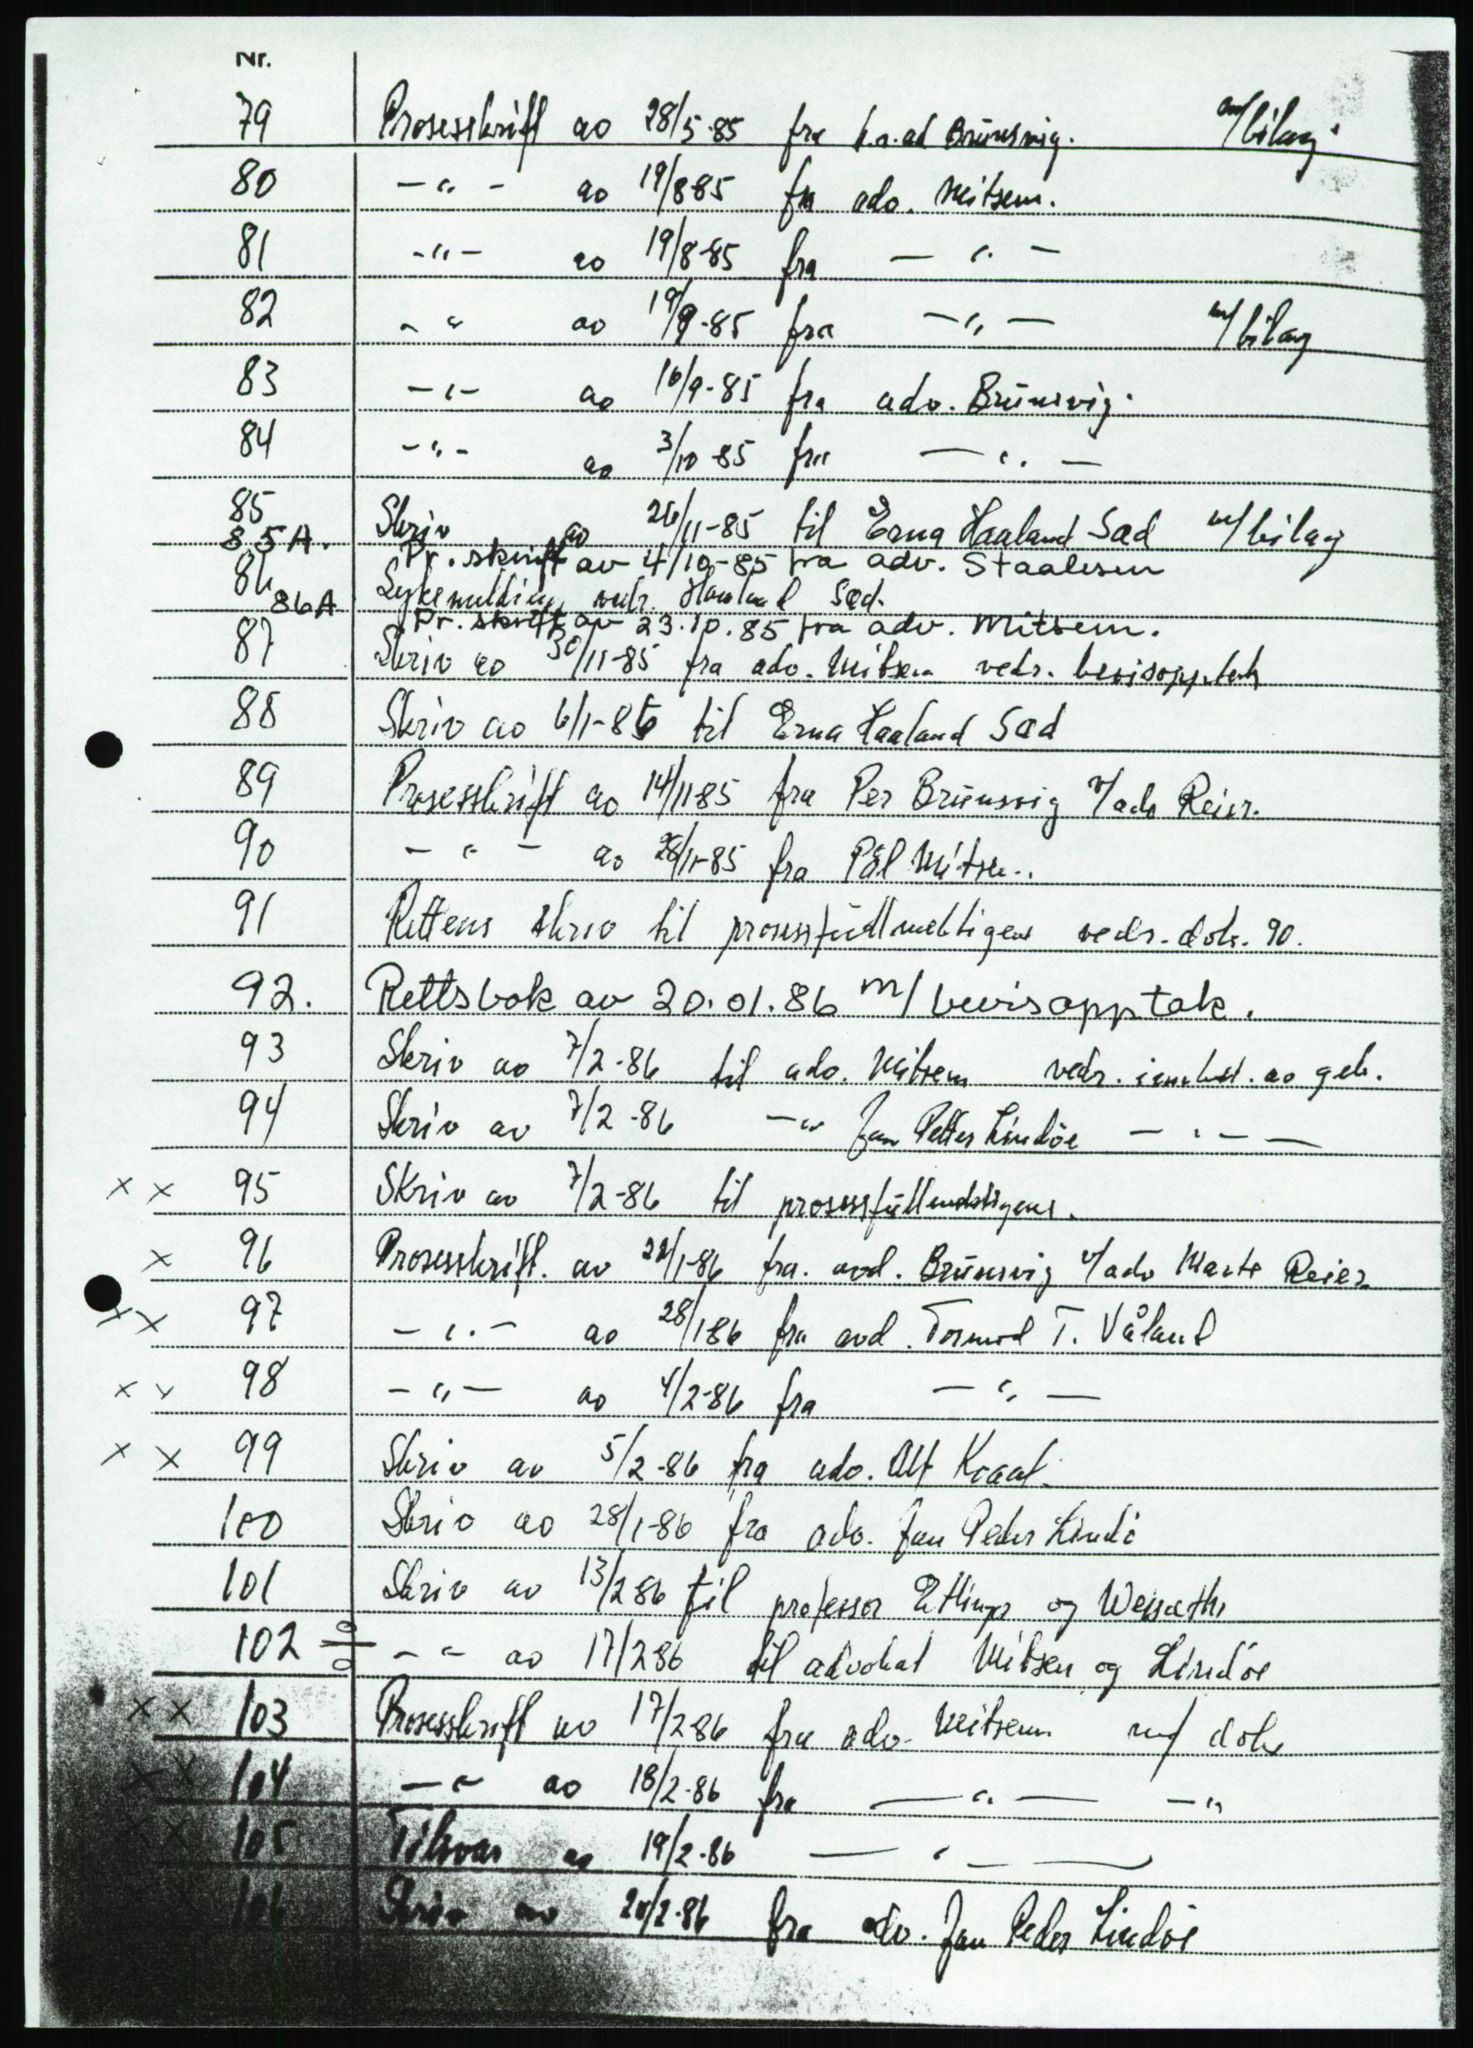 Nr.
79 Prosesskrift av 28/5-85 fra h.r.ad Brunsvig. m/bilag
80 -"- av 19/8-85 fra adv. Mitsem.
81 -"- av 19/8-85 fra -"-
82 -"- av 19/9-85 fra -"- m/bilag
83 -"- av 16/9-85 fra adv. Brunsvig.
84 -"- av 3/10-85 fra -"-
85 Skriv av 26/11-85 til Erna Haaland Sæd m/bilag
85A. Pr. skrift av 4/10-85 fra adv. Staalesen
86 Sykemelding vedr. Haaland Sæd.
86A Pr. skrift av 23.10.85 fra adv. Mitsem.
87 Skriv av 30/11-85 fra adv. Mitsem vedr. bevisopptak
88 Skriv av 6/1-86 til Erna Haaland Sæd
89 Prosesskrift av 14/11-85 fra Per Brunsvig v/adv Reier.
90 -"- av /11-85 fra Pål Mitsem.
91 Rettens skriv til prosessfullmektigene vedr. dok. 90.
92. Rettsbok av 20.01.86 m/bevisopptak.
93 Skriv av 7/2-86 til adv. Mitsem vedr. av geb.
94 Skriv av 7/2-86 -" Jan Petter Lindöe -"-
x x 95 Skriv av 7/2-86 til prosessfullmektigene.
x 96 Prosesskrift. av /1-86 fra. avd. Brunsvig v/adv Marte Reier
x x 97 -"- av 28/1-86 fra avd. Tormod T. Våland
x x 98 -"- av 4/2-86 fra -"-
x x 99 Skriv av 5/2-86 fra adv. Alf
100 Skriv av 28/1-86 fra adv. Jan Peder Lindö
101 Skriv av 13/2 86 til professor Etlinger og Weisæth
102 -"- av 17/2 86 til advokat Mitsem og Lindöe
x x 103 Prosesskrift av 17/2-86 fra adv. Mitsem m/ dok
x x 104 -"- av 18/2-86 fra -"- -"
x x 105 Tilsvar av 19/2-86 -"-
106 Skriv av 20/2-86 fra adv. Jan Peder Lindöe